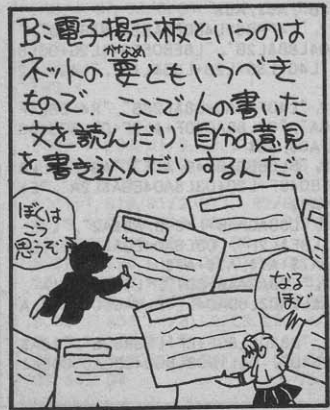 B:電子掲示板というのは
ネットの要ともいうべき
かなめ
もので、ここで人の書いた
文を読んだり、自分の意見
を書き込んだりするんだ。
ぼくは
こう
思うぞ
なる
ほど